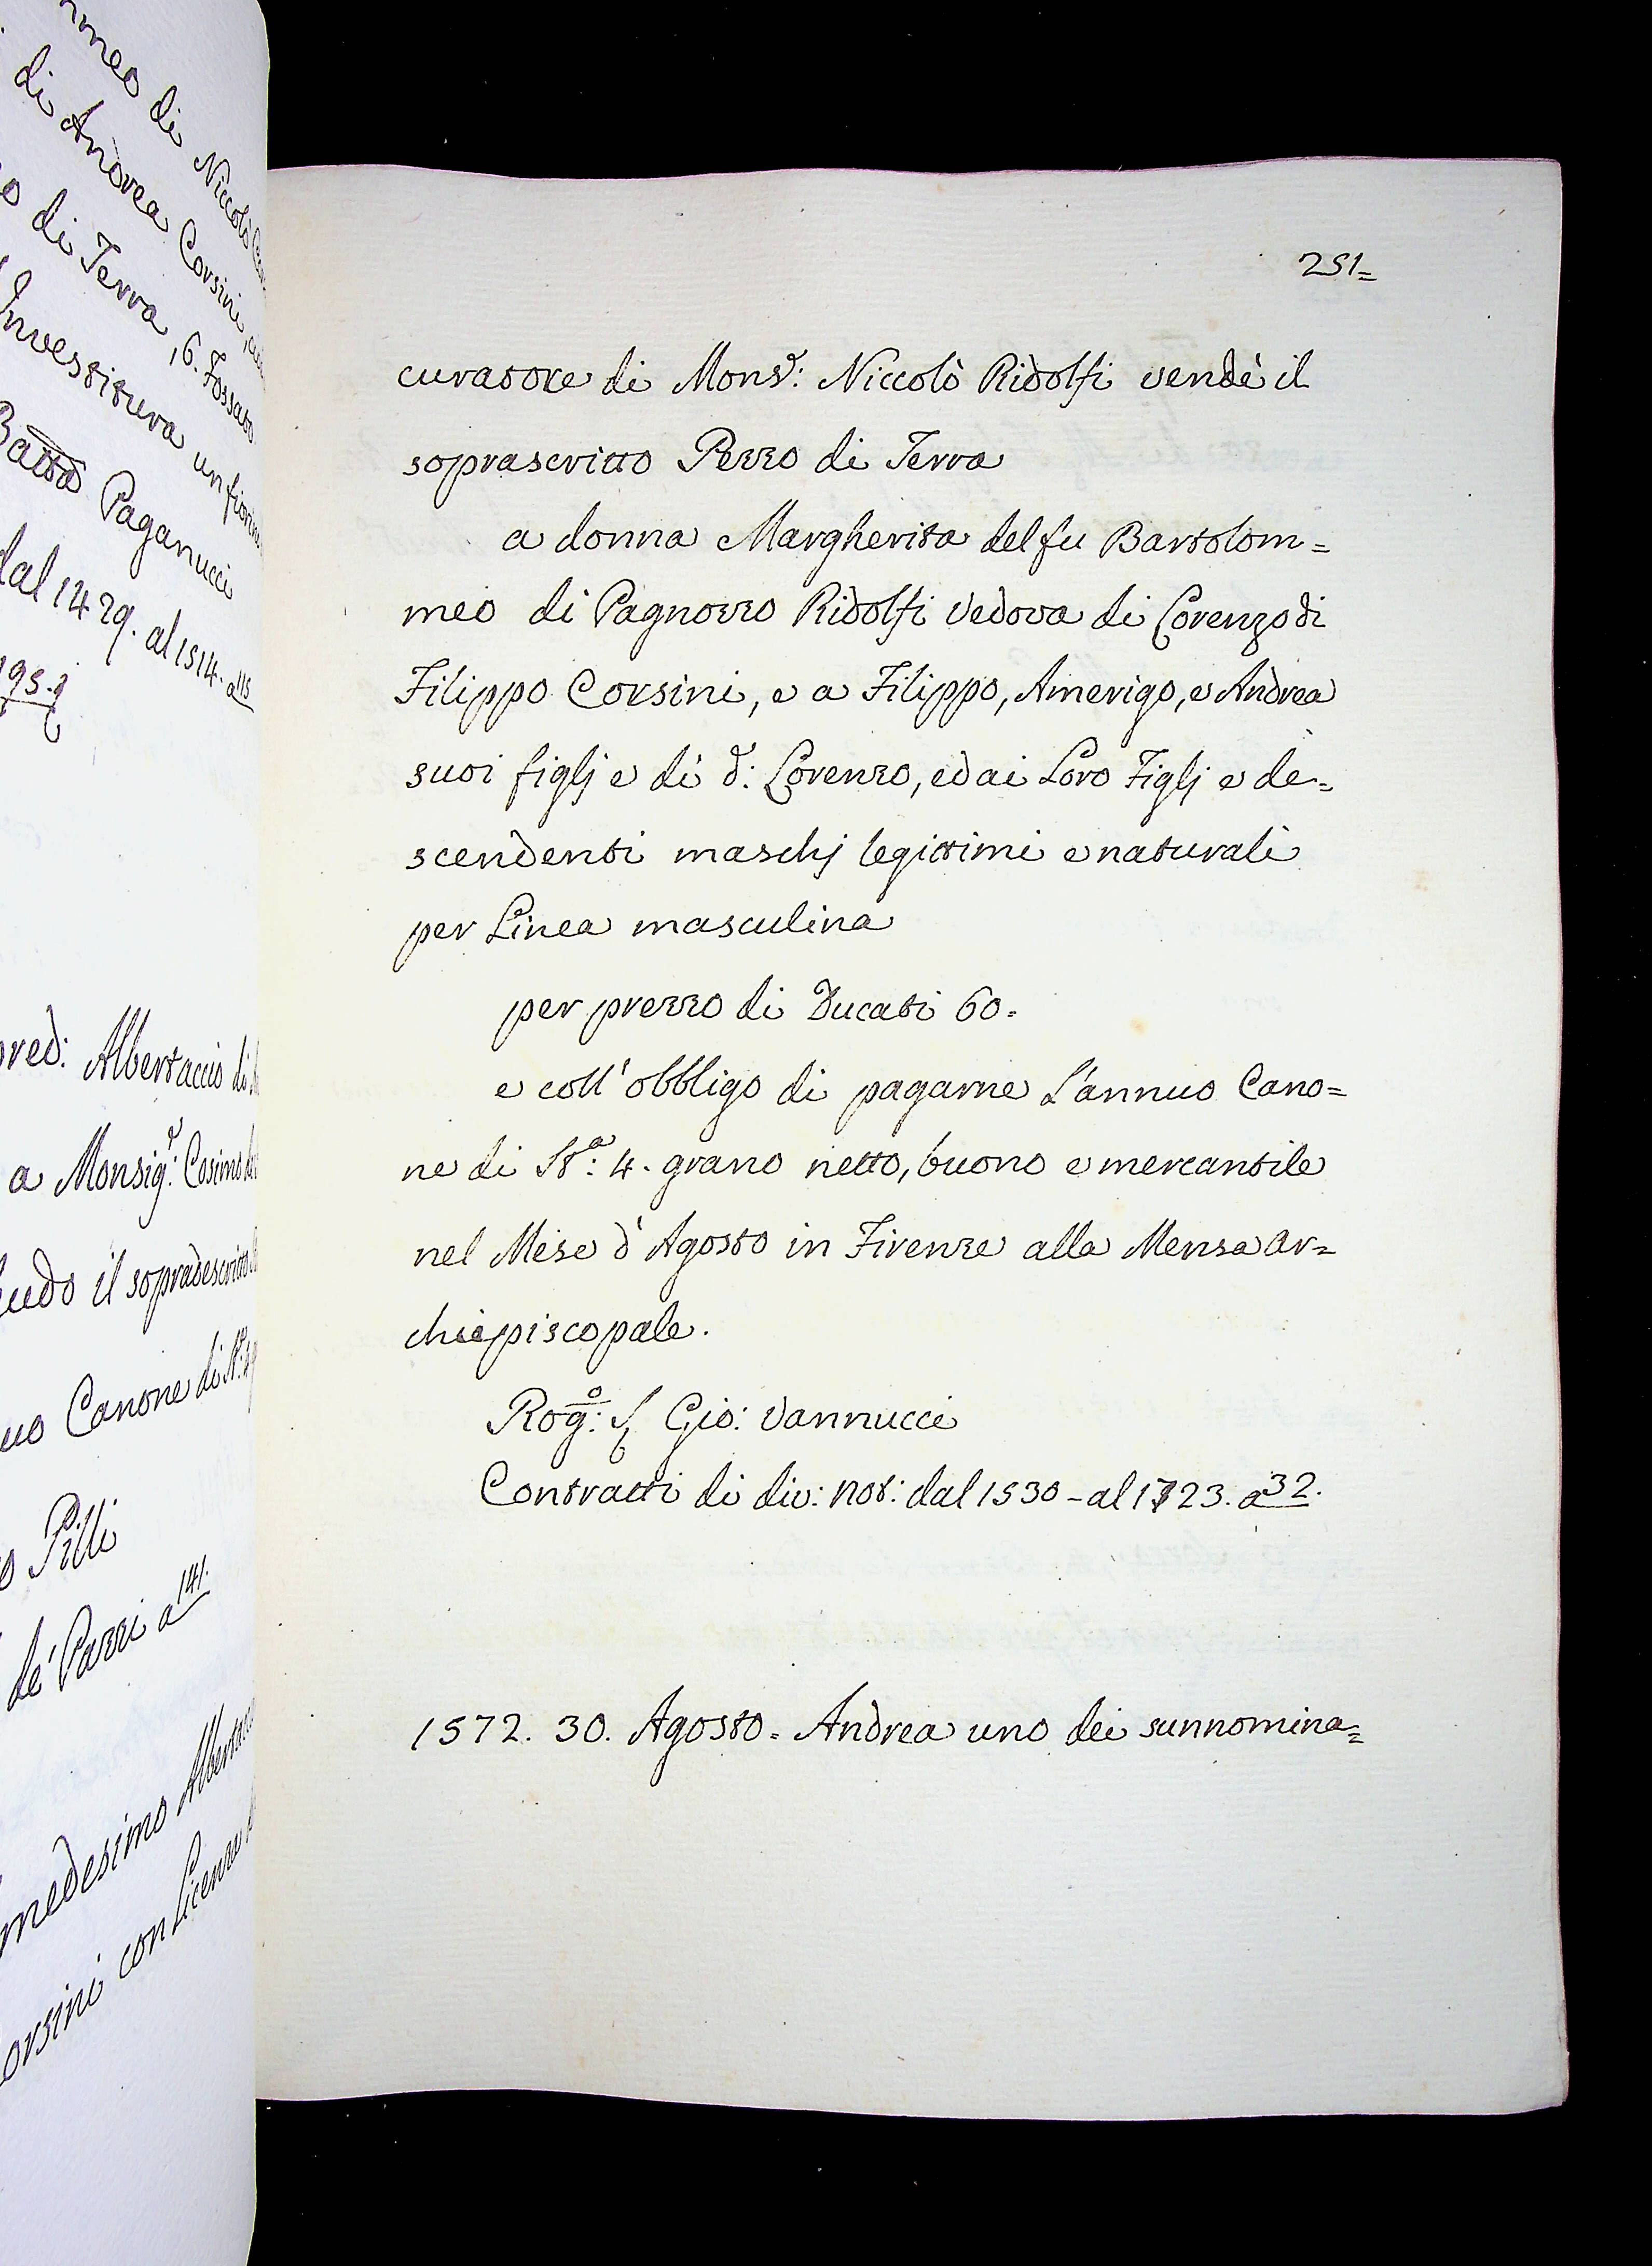 meo di Niccolò
di Andrea Corsini,
di Terra, 6. Fossato
Investitura un fiorin
Batta Paganucci
dal 1429. al 1514. a 115
195.
pred: Albertaccio di
a Monsig.r: Cosimo
il sopradescritto
Canone di St.a:
Pilli
de' Pazzi a 141.
medesimo Albertacc
orsini con licenza
251=
curatore di Mons.r: Niccolò Ridolfi vendè il
soprascritto Pezzo di Terra
a donna Margherita del fu Bartolom=
meo di Pagnozzo Ridolfi vedova di Lorenzo di
Filippo Corsini, e a Filippo, Amerigo, e Andrea
suoi figlj e di d: Lorenzo, ed ai Loro Figlj e de=
scendenti maschj legittimi e naturali
per Linea masculina
per prezzo di Ducati 60.
e coll' obbligo di pagarne L'annuo Cano=
ne di St.a: 4. grano netto, buono e mercantile
nel Mese d'Agosto in Firenze alla Mensa Ar=
chiepiscopale.
Rog.o: S. Gio: Vannucci
Contratti di div: not: dal 1530 - al 1723. a 32.
1572. 30. Agosto. Andrea uno dei sunnomina=